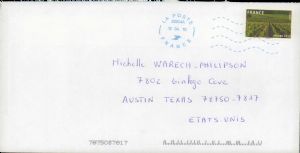 LA POSTE
FRANCE
FRANCE
Michelle WARECH-PHILIPSON
7802 Ginkgo Cove
AUSTIN TEXAS 78750-7817
ETATS-UNIS